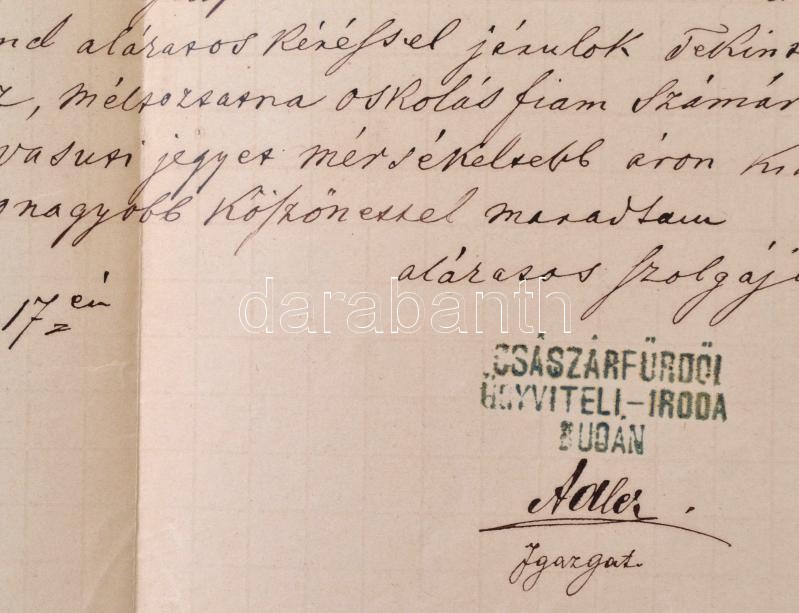 nd alázatos kéréssel járulok Tekint
z, méltoztatna oskolás fiam számár
vasuti jegyet mérsékeltebb áron ki
gnagyobb köszönettel maradtam
alázatos szolgája
17 én
darabanth
CSÁSZÁRFÜRDŐI
ÜGYVITELI.-IRODA
BUDÁN
Adler.
Igazgat.